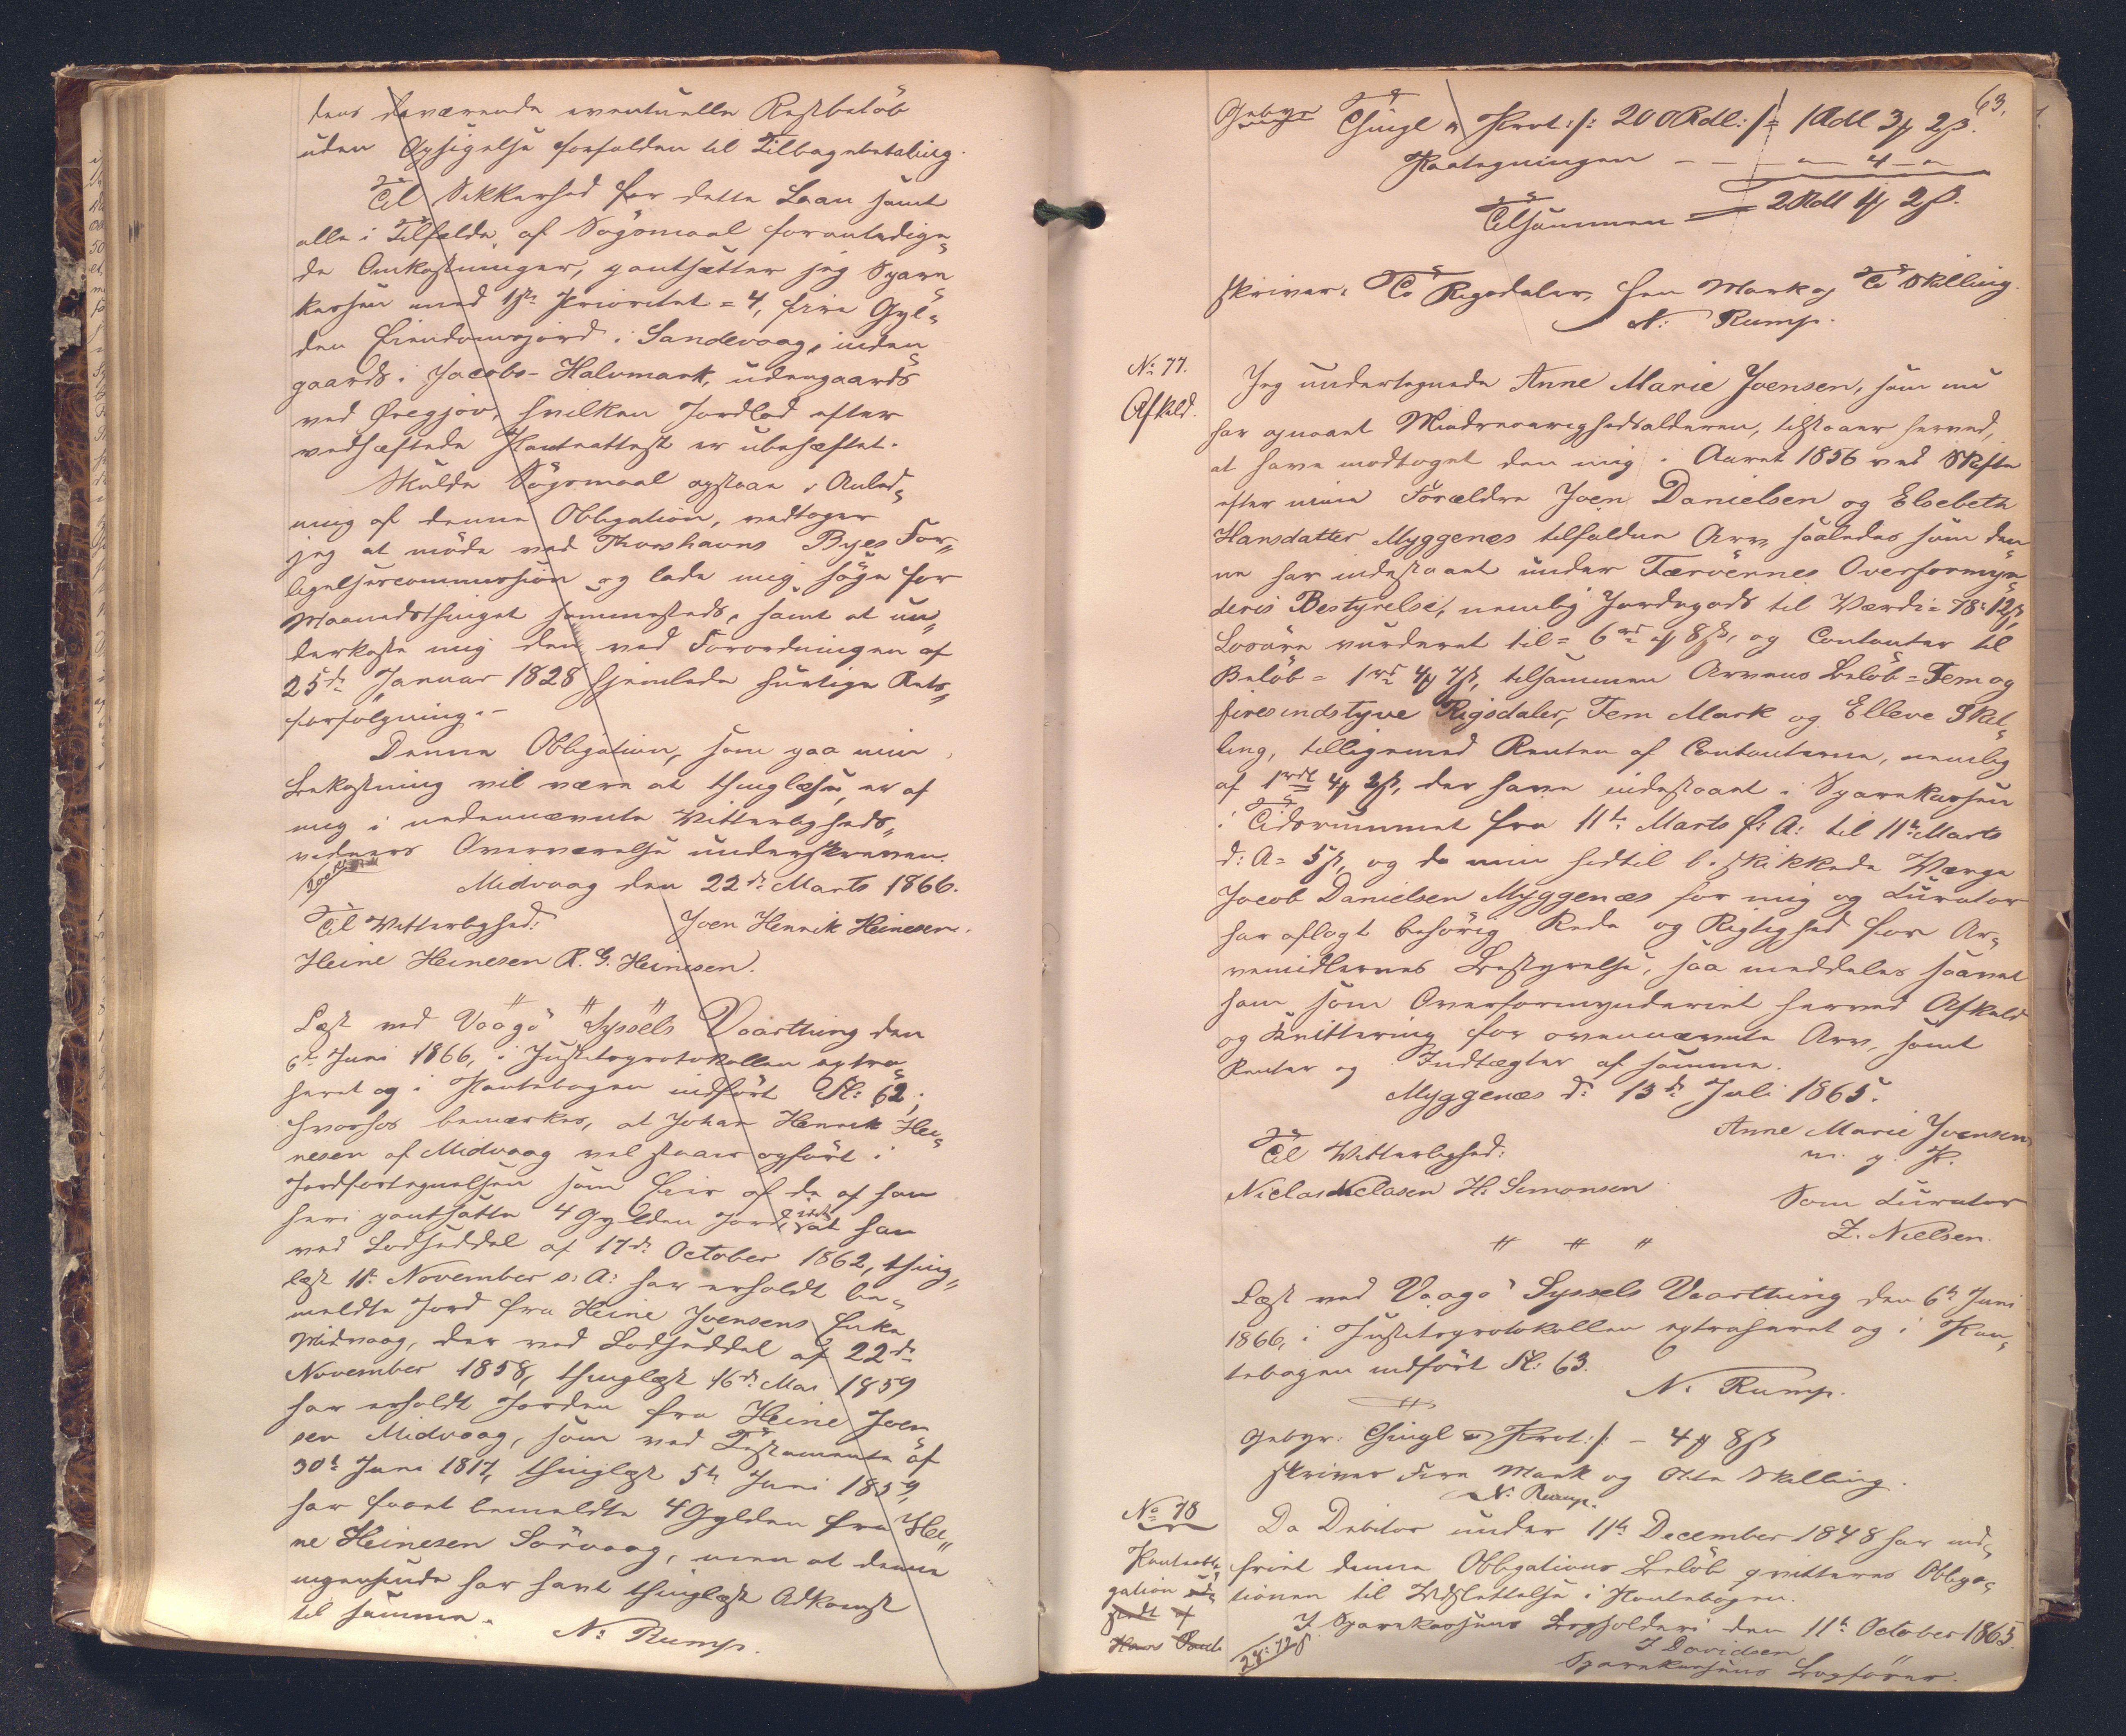 dens deværende eventuelle Restbeløb
uden Opsigelse forfalden til Tilbagebetaling.
Til Sikkerhed for dette Laan samt
alle i Tilfælde af Søgsmaal foranledige„
de Omkostninger, pantsætter jeg Spare„
kassen med 1ste Prioritet = 4, fire Gyl„
den Eiendomsjord i Sandevaag, inden
gaards i Jacobs-Halvmark, udengaards
ved Øregjov, hvilken Jordlod efter
vedhæftede Panteattest er ubehæftet.
Skulde Søgsmaal opstaae i Anled„
ning af denne Obligation, vedtager
jeg at møde ved Thorshavns Byes For„
ligelsescommission og lade mig søge for
Maanedsthinget sammesteds, samt at un„
derkaste mig den ved Forordningen af
25de Januar 1828 hjemlede hurtige Rets„
forfølgning.-
Denne Obligation, som paa min
Bekostning vil være at thinglæse, er af
mig i nedennævnte Vitterligheds„
vidners Overværelse underskreven.
Midvaag den 22de Marts 1866.
Til Vitterlighed: Joen Henrik Heinesen.
Heine Heinesen R. G. Heinesen.
Læst ved Vaagø Syssels Vaarthing den
6te Juni 1866, i Justitsprotokollen extra„
heret og i Pantebogen indført Fol: 62;
hvorhos bemærkes, at Johan Henrik Hei„
nesen af Midvaag vel staaer opført i
Jordfortegnelsen som Eier af de af ham
heri pantsatte 4 Gylden Jord, at han
ved Lodseddel af 17de October 1862, thing„
læst 11te November s: A: har erholdt be„
meldte Jord fra Heine Joensens Enke
Midvaag, der ved Lodseddel af 22de
November 1858, thinglæst 16de Mai 1859
har erholdt Jorden fra Heine Joen
sen Midvaag, som ved Testamente af
30te Juni 1817, thinglæst 5te Juni 1859,
har faaet bemeldte 4 Gylden fra Hei„
ne Heinesen Sørvaag, men at denne
ingensinde har havt thinglæst Adkomst
til samme.
N: Rump.
63.
Gebyr Thingl & Prot:/: 200 Rdl:/= 1 Rdl 3 ℳ 2 ß.
Paategningen - - - „ - 4 - „
Tilsammen = 2 Rdl 1 ℳ 2 ß.
skriver: To Rigsdaler, een Mark og To Skilling.
N: Rump.
No 77.
Afkald.
Jeg undertegnede Anne Marie Joensen, som nu
har opnaaet Mindreaarighedsalderen, tilstaaer herved,
at have modtaget den mig i Aaret 1856 ved Skifte
efter mine Forældre Joen Danielsen og Elsebeth
Hansdatter Myggenes tilfaldne Arv, saaledes som den„
ne har indestaaet under Færøernes Overformyn„
deris Bestyrelse, nemlig Jordegods til Værdi = 78: 12 ß,
Løsøre vurderet til = 6 rd „ ℳ 8 ß, og Contanter til
Beløb = 1 rd 4 ℳ 7 ß, tilsammen Arvens Beløb = Fem og
firesindstyve Rigsdaler, Fem Mark og Elleve Skil„
ling, tilligemed Renten af Contanterne, nemlig
af 1 rdl 4 ℳ 2 ß, der have indestaaet i Sparekassen
i Tidsrummet fra 11te Marts f: A: til 11te Marts
d: A = 5 ß, og da min hidtil beskikkede Værge
Jacob Danielsen Myggenæs for mig og Curator
har aflagt behørig Rede og Rigtighed for Ar„
vemidlernes Bestyrelse, saa meddeles saavel
ham som Overformynderiet herved Afkald
og Qvittering for ovennævnte Arv, samt
Renter og Indtægter af samme.
Myggenæs d: 13de Juli 1865.
Anne Marie Joensen
m. p. P.
Til Vitterlighed:
Niclas Niclasen H. Simonsen
Som Curator
Z. Nielsen.
Læst ved Vaagø Syssels Vaarthing den 6te Juni
1866, i Justitsprotokollen extraheret og i Pan„
tebogen indført Fol: 63.
N. Rump.
Gebyr: Thingl & Prot:/: - 4 ℳ 8 ß
skriver Fire Mark og Otte Skilling.
N. Rump.
No 78
Panteobli„
gation
Hans
Da Debitor under 11te December 1848 har ind„
friet denne Obligations Beløb qvitteres Obliga„
tionen til Udslettelse i Pantebogen.
I Sparekassens Bogholderi den 11te October 1865.
J Davidsen
Sparekassens Bogfører.